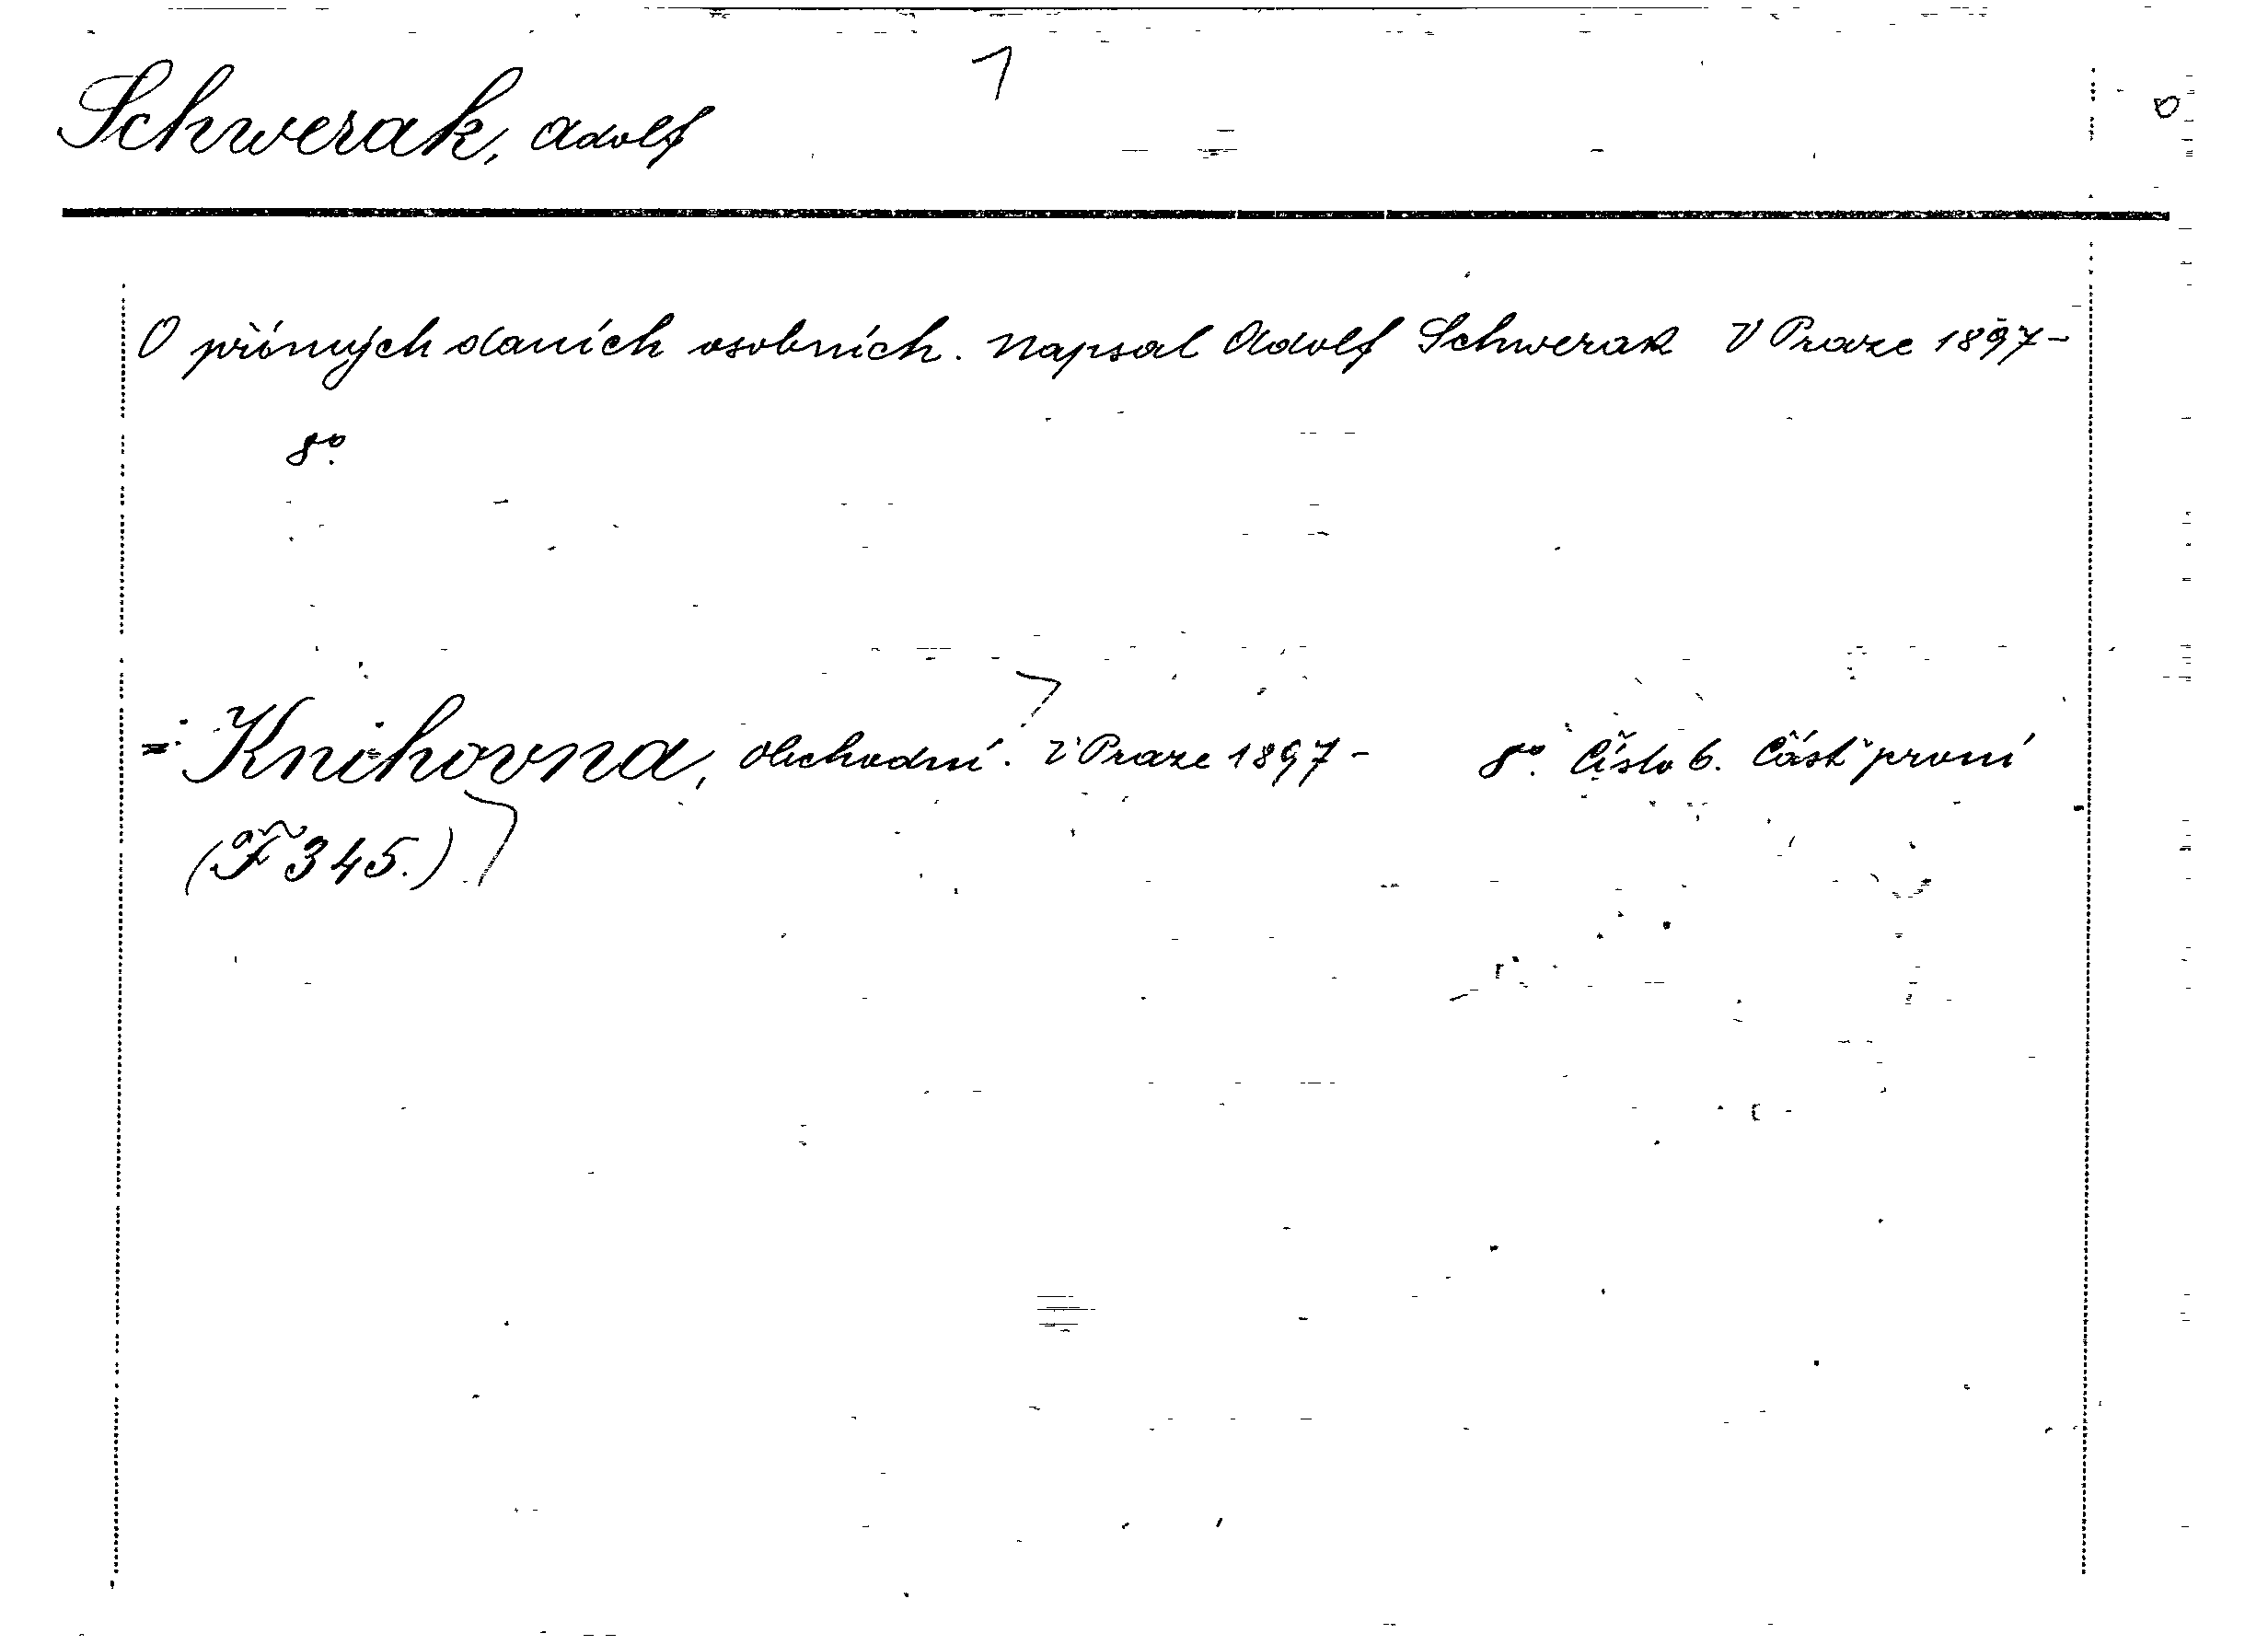 Schwerak, Adolf
O přímých daních osobních. Napsal Adolf Schwerak V Praze 1897-
8º.
= Knihovna, obchodní. V Praze 1897- 8º. Číslo 6. Část první
(F 345.)